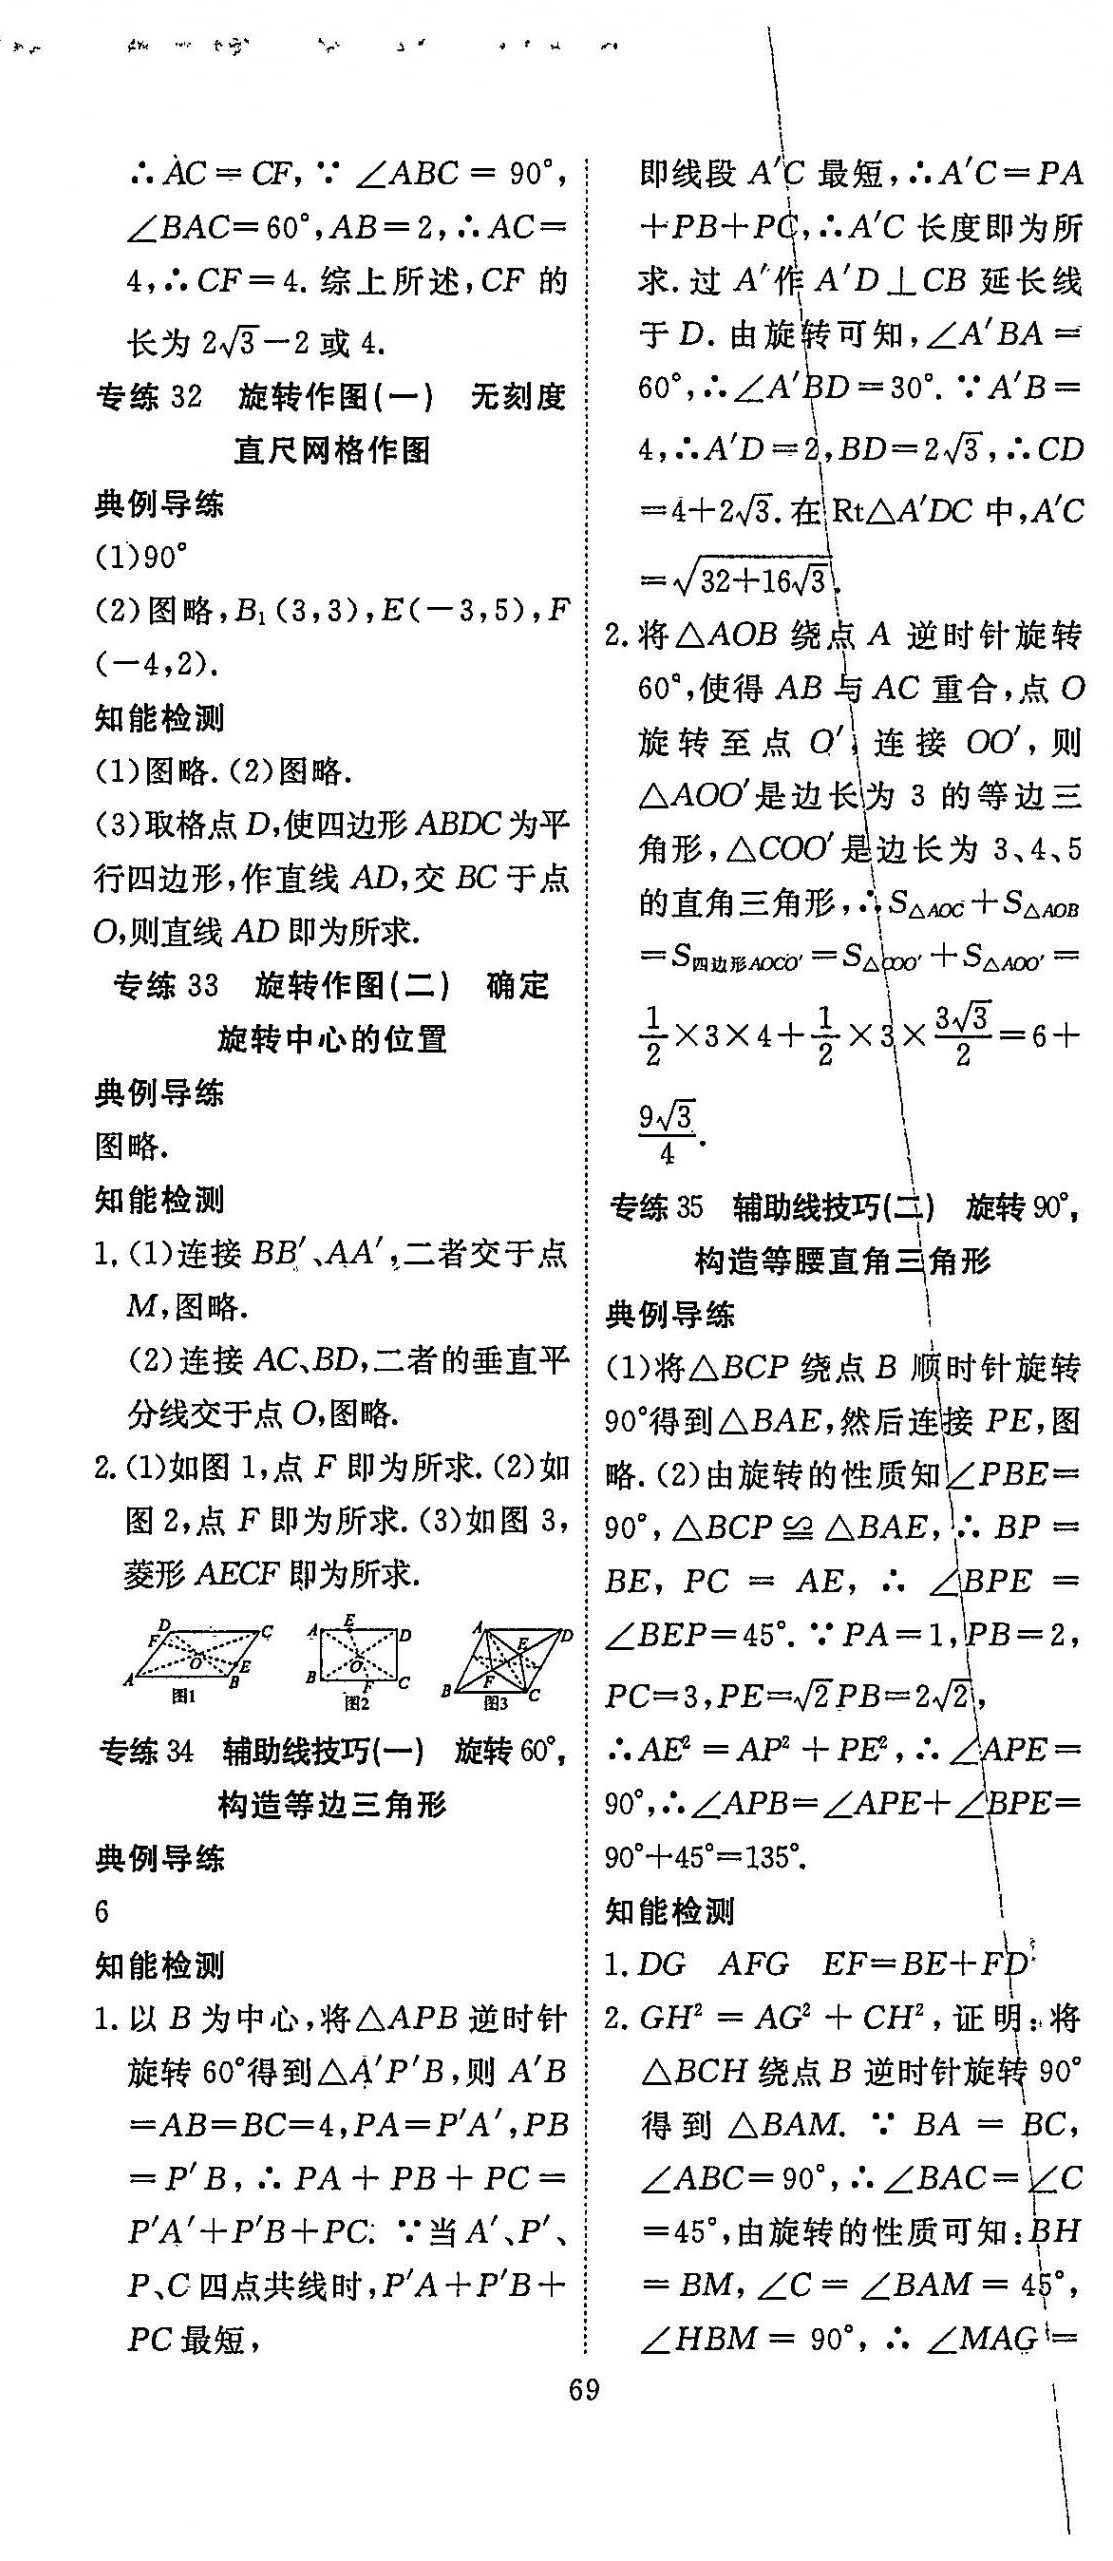 ∴AC=CF,∵ ∠ABC = 90°,
∠BAC=60°,AB=2,∴AC=
4,∴CF=4. 综上所述,CF 的
长为 2√3−2 或 4.
专练 32 旋转作图(一) 无刻度
直尺网格作图
典例导练
(1)90°
(2)图略,B₁(3,3),E(−3,5),F
(−4,2).
知能检测
(1)图略.(2)图略.
(3)取格点 D,使四边形 ABDC 为平
行四边形,作直线 AD,交 BC 于点
O,则直线 AD 即为所求.
专练 33 旋转作图(二) 确定
旋转中心的位置
典例导练
图略.
知能检测
1.(1)连接 BB′、AA′,二者交于点
M,图略.
(2)连接 AC、BD,二者的垂直平
分线交于点 O,图略.
2.(1)如图 1,点 F 即为所求.(2)如
图 2,点 F 即为所求.(3)如图 3,
菱形 AECF 即为所求.
D C F O E A B 图1
A E D O B F C 图2
A D E F B C 图3
专练 34 辅助线技巧(一) 旋转 60°,
构造等边三角形
典例导练
6
知能检测
1. 以 B 为中心,将△APB 逆时针
旋转 60°得到△A′P′B,则 A′B
=AB=BC=4,PA=P′A′,PB
=P′B,∴PA+PB+PC=
P′A′+P′B+PC. ∵当 A′、P′、
P、C 四点共线时,P′A+P′B+
PC 最短,
即线段 A′C 最短,∴A′C=PA
+PB+PC,∴A′C 长度即为所
求.过 A′作 A′D⊥CB 延长线
于 D. 由旋转可知,∠A′BA=
60°,∴∠A′BD=30°. ∵A′B=
4,∴A′D=2,BD=2√3,∴CD
=4+2√3. 在 Rt△A′DC 中,A′C
=√(32+16√3).
2. 将△AOB 绕点 A 逆时针旋转
60°,使得 AB 与 AC 重合,点 O
旋转至点 O′,连接 OO′,则
△AOO′是边长为 3 的等边三
角形,△COO′是边长为 3、4、5
的直角三角形,∴S△AOC+S△AOB
=S四边形AOCO′=S△COO′+S△AOO′=
1/2×3×4+1/2×3×3√3/2=6+
9√3/4.
专练 35 辅助线技巧(二) 旋转 90°,
构造等腰直角三角形
典例导练
(1)将△BCP 绕点 B 顺时针旋转
90°得到△BAE,然后连接 PE,图
略.(2)由旋转的性质知∠PBE=
90°,△BCP≌△BAE,∴BP=
BE, PC = AE, ∴ ∠BPE =
∠BEP=45°. ∵PA=1,PB=2,
PC=3,PE=√2PB=2√2,
∴AE²=AP²+PE²,∴∠APE=
90°,∴∠APB=∠APE+∠BPE=
90°+45°=135°.
知能检测
1. DG AFG EF=BE+FD
2. GH²=AG²+CH²,证明:将
△BCH 绕点 B 逆时针旋转 90°
得到△BAM. ∵ BA = BC,
∠ABC=90°,∴∠BAC=∠C
=45°,由旋转的性质可知:BH
=BM,∠C=∠BAM=45°,
∠HBM=90°,∴∠MAG=
69